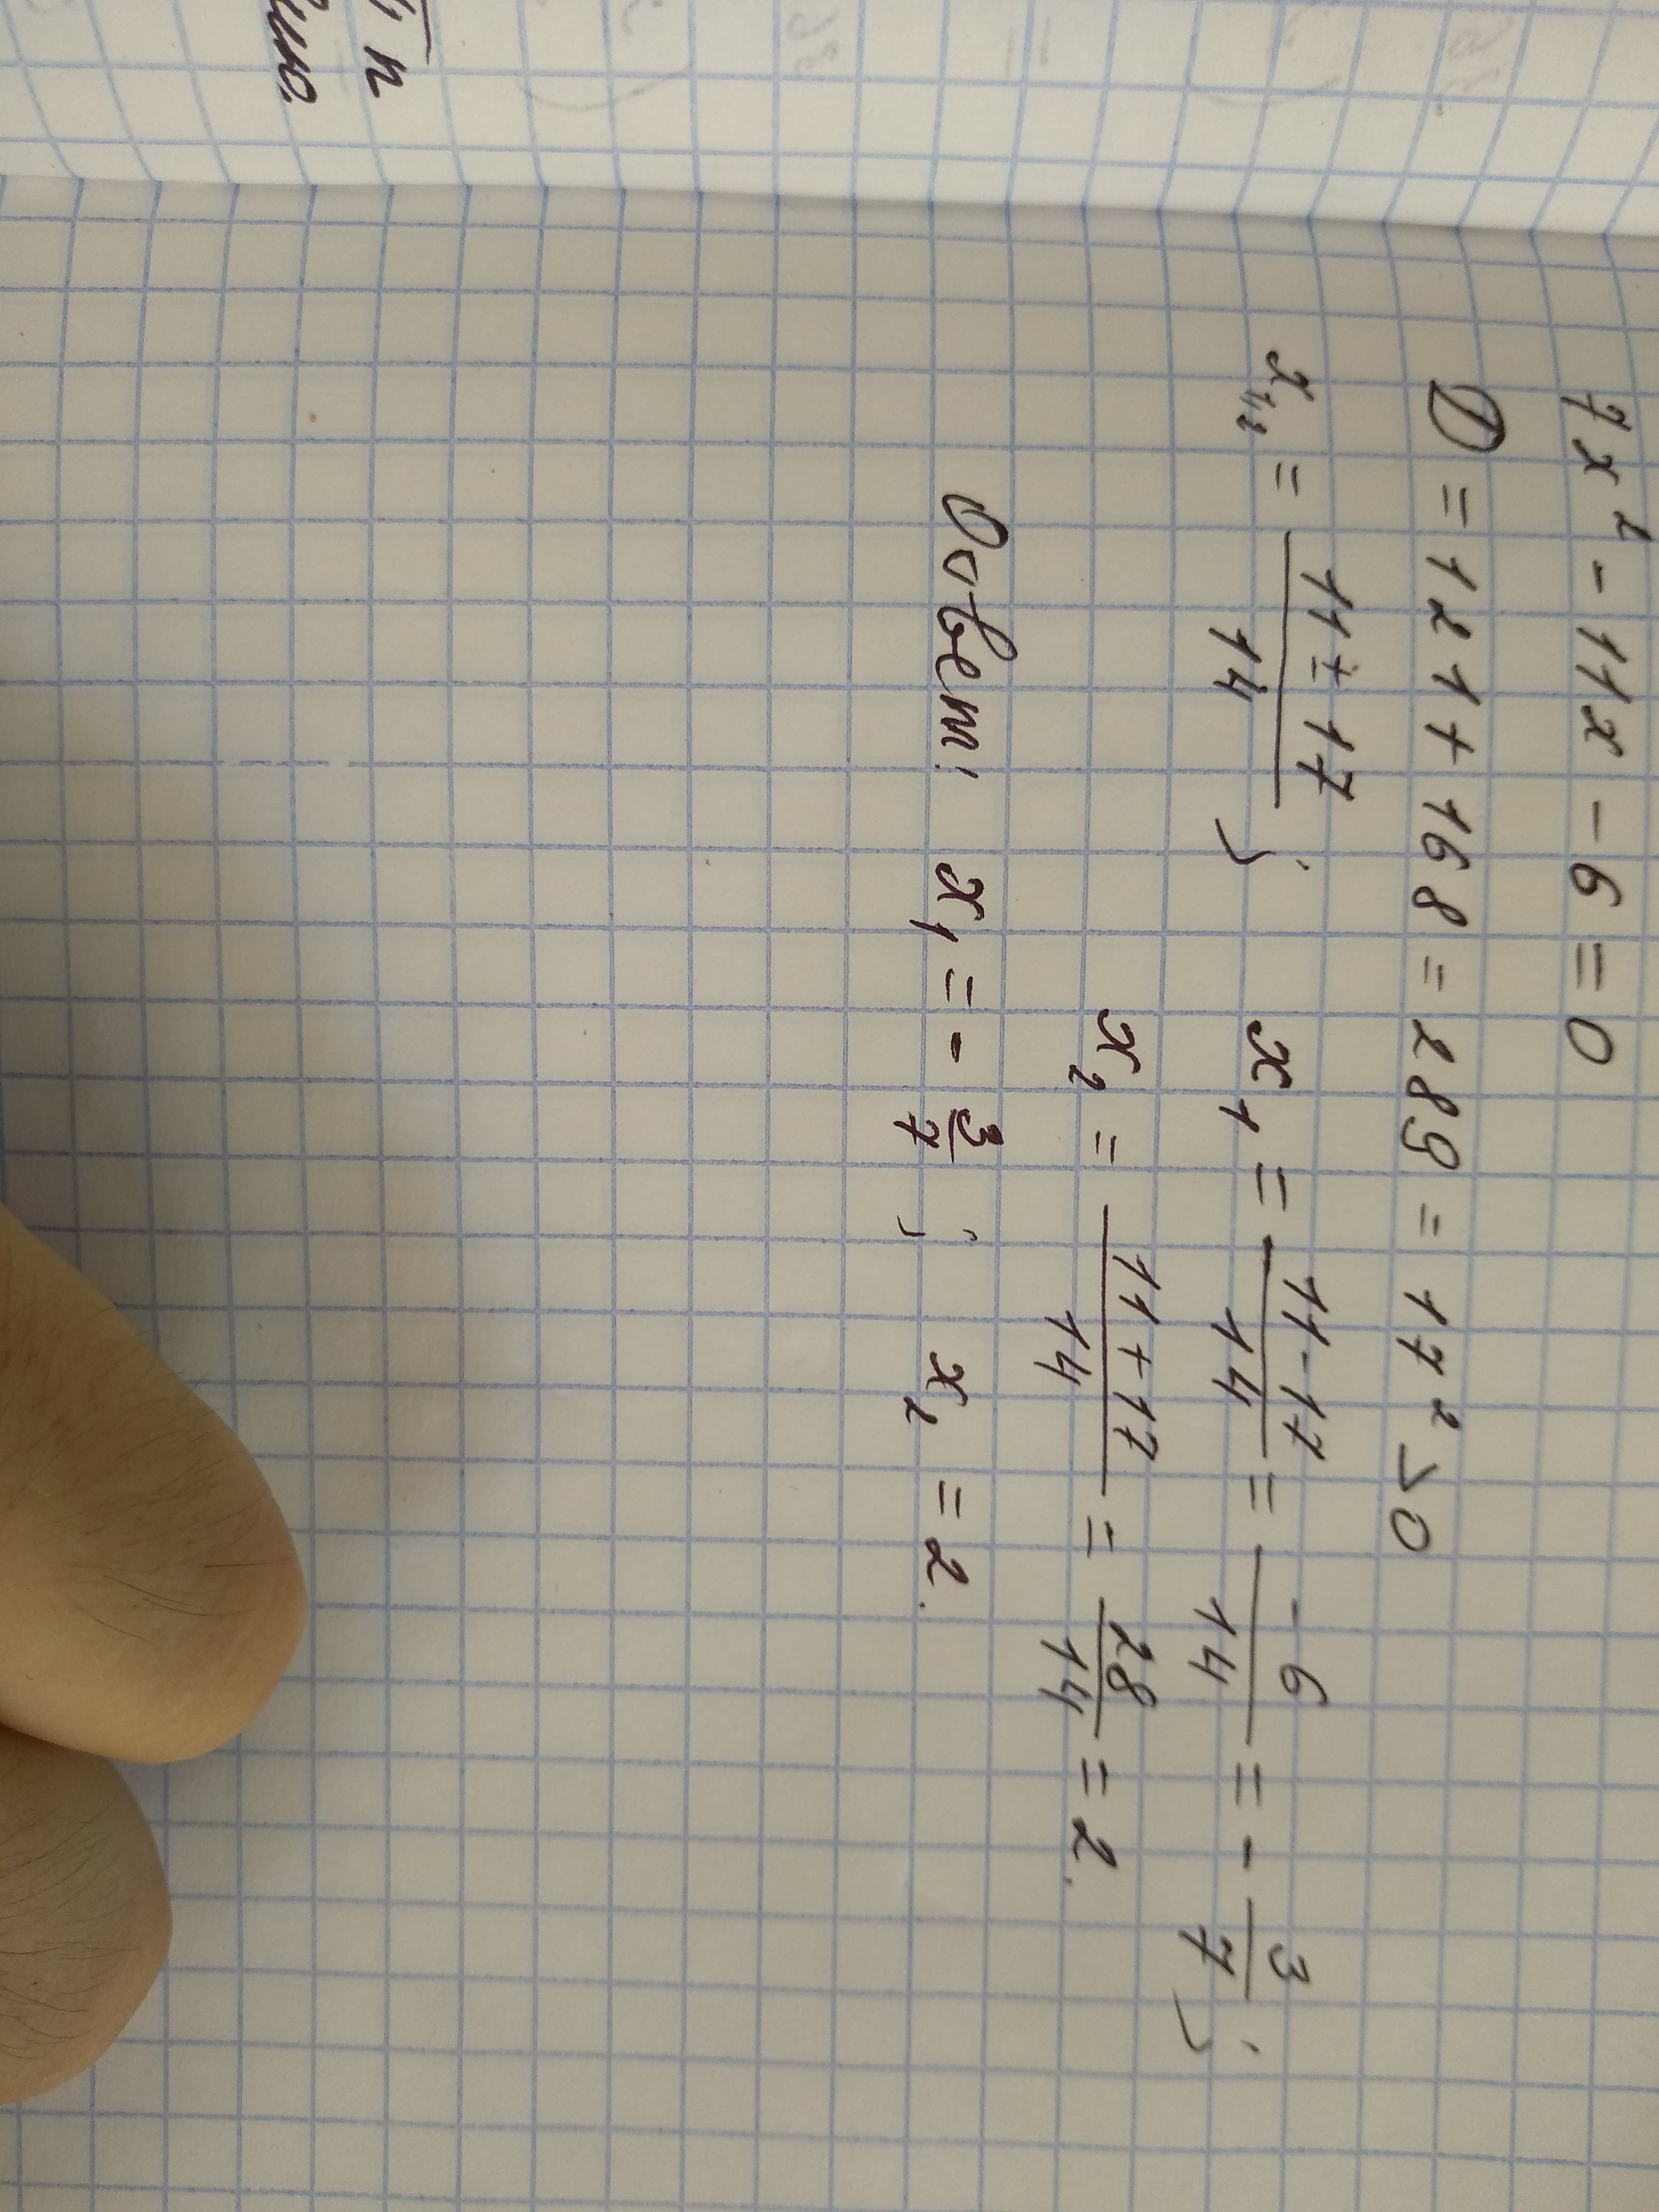 7x² - 11x - 6 = 0
D = 121 + 168 = 289 = 17² > 0
x₁,₂ = (11 ± 17)/14 ; x₁ = (11-17)/14 = -6/14 = - 3/7 ;
x₂ = (11+17)/14 = 28/14 = 2.
Ответ: x₁ = - 3/7 ; x₂ = 2.